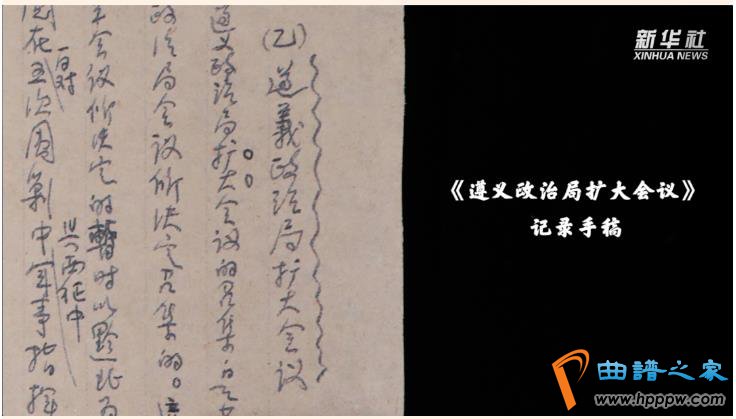 (乙)遵義政治局扩大会议
遵义政治局扩大会议的召集
政治局会议所决定召集的。
会议所决定的暂时以黔北为
一月对
在五次围剿中军事指挥
与西征中
新华社
XINHUA NEWS
《遵义政治局扩大会议》
记录手稿
曲谱之家
www.hpppw.com